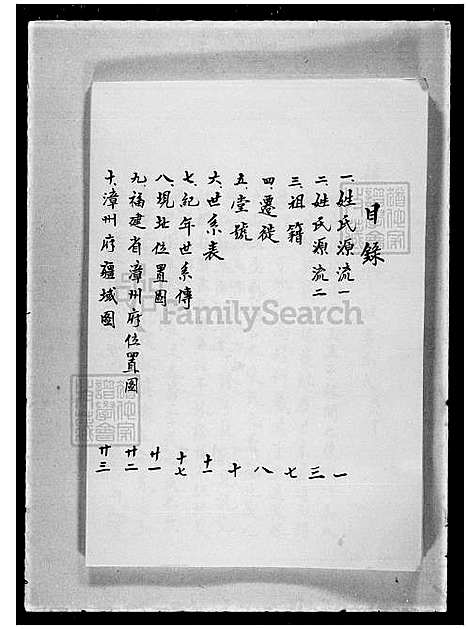 目錄
一、姓氏源流一 一
二、姓氏源流二 三
三、祖籍 七
四、遷徙 八
五、堂號 十
六、世系表 十一
七、紀年世系傳 十七
八、現址位置圖 廿一
九、福建省漳州府位置圖 廿二
十、漳州府疆域圖 廿三
FamilySearch